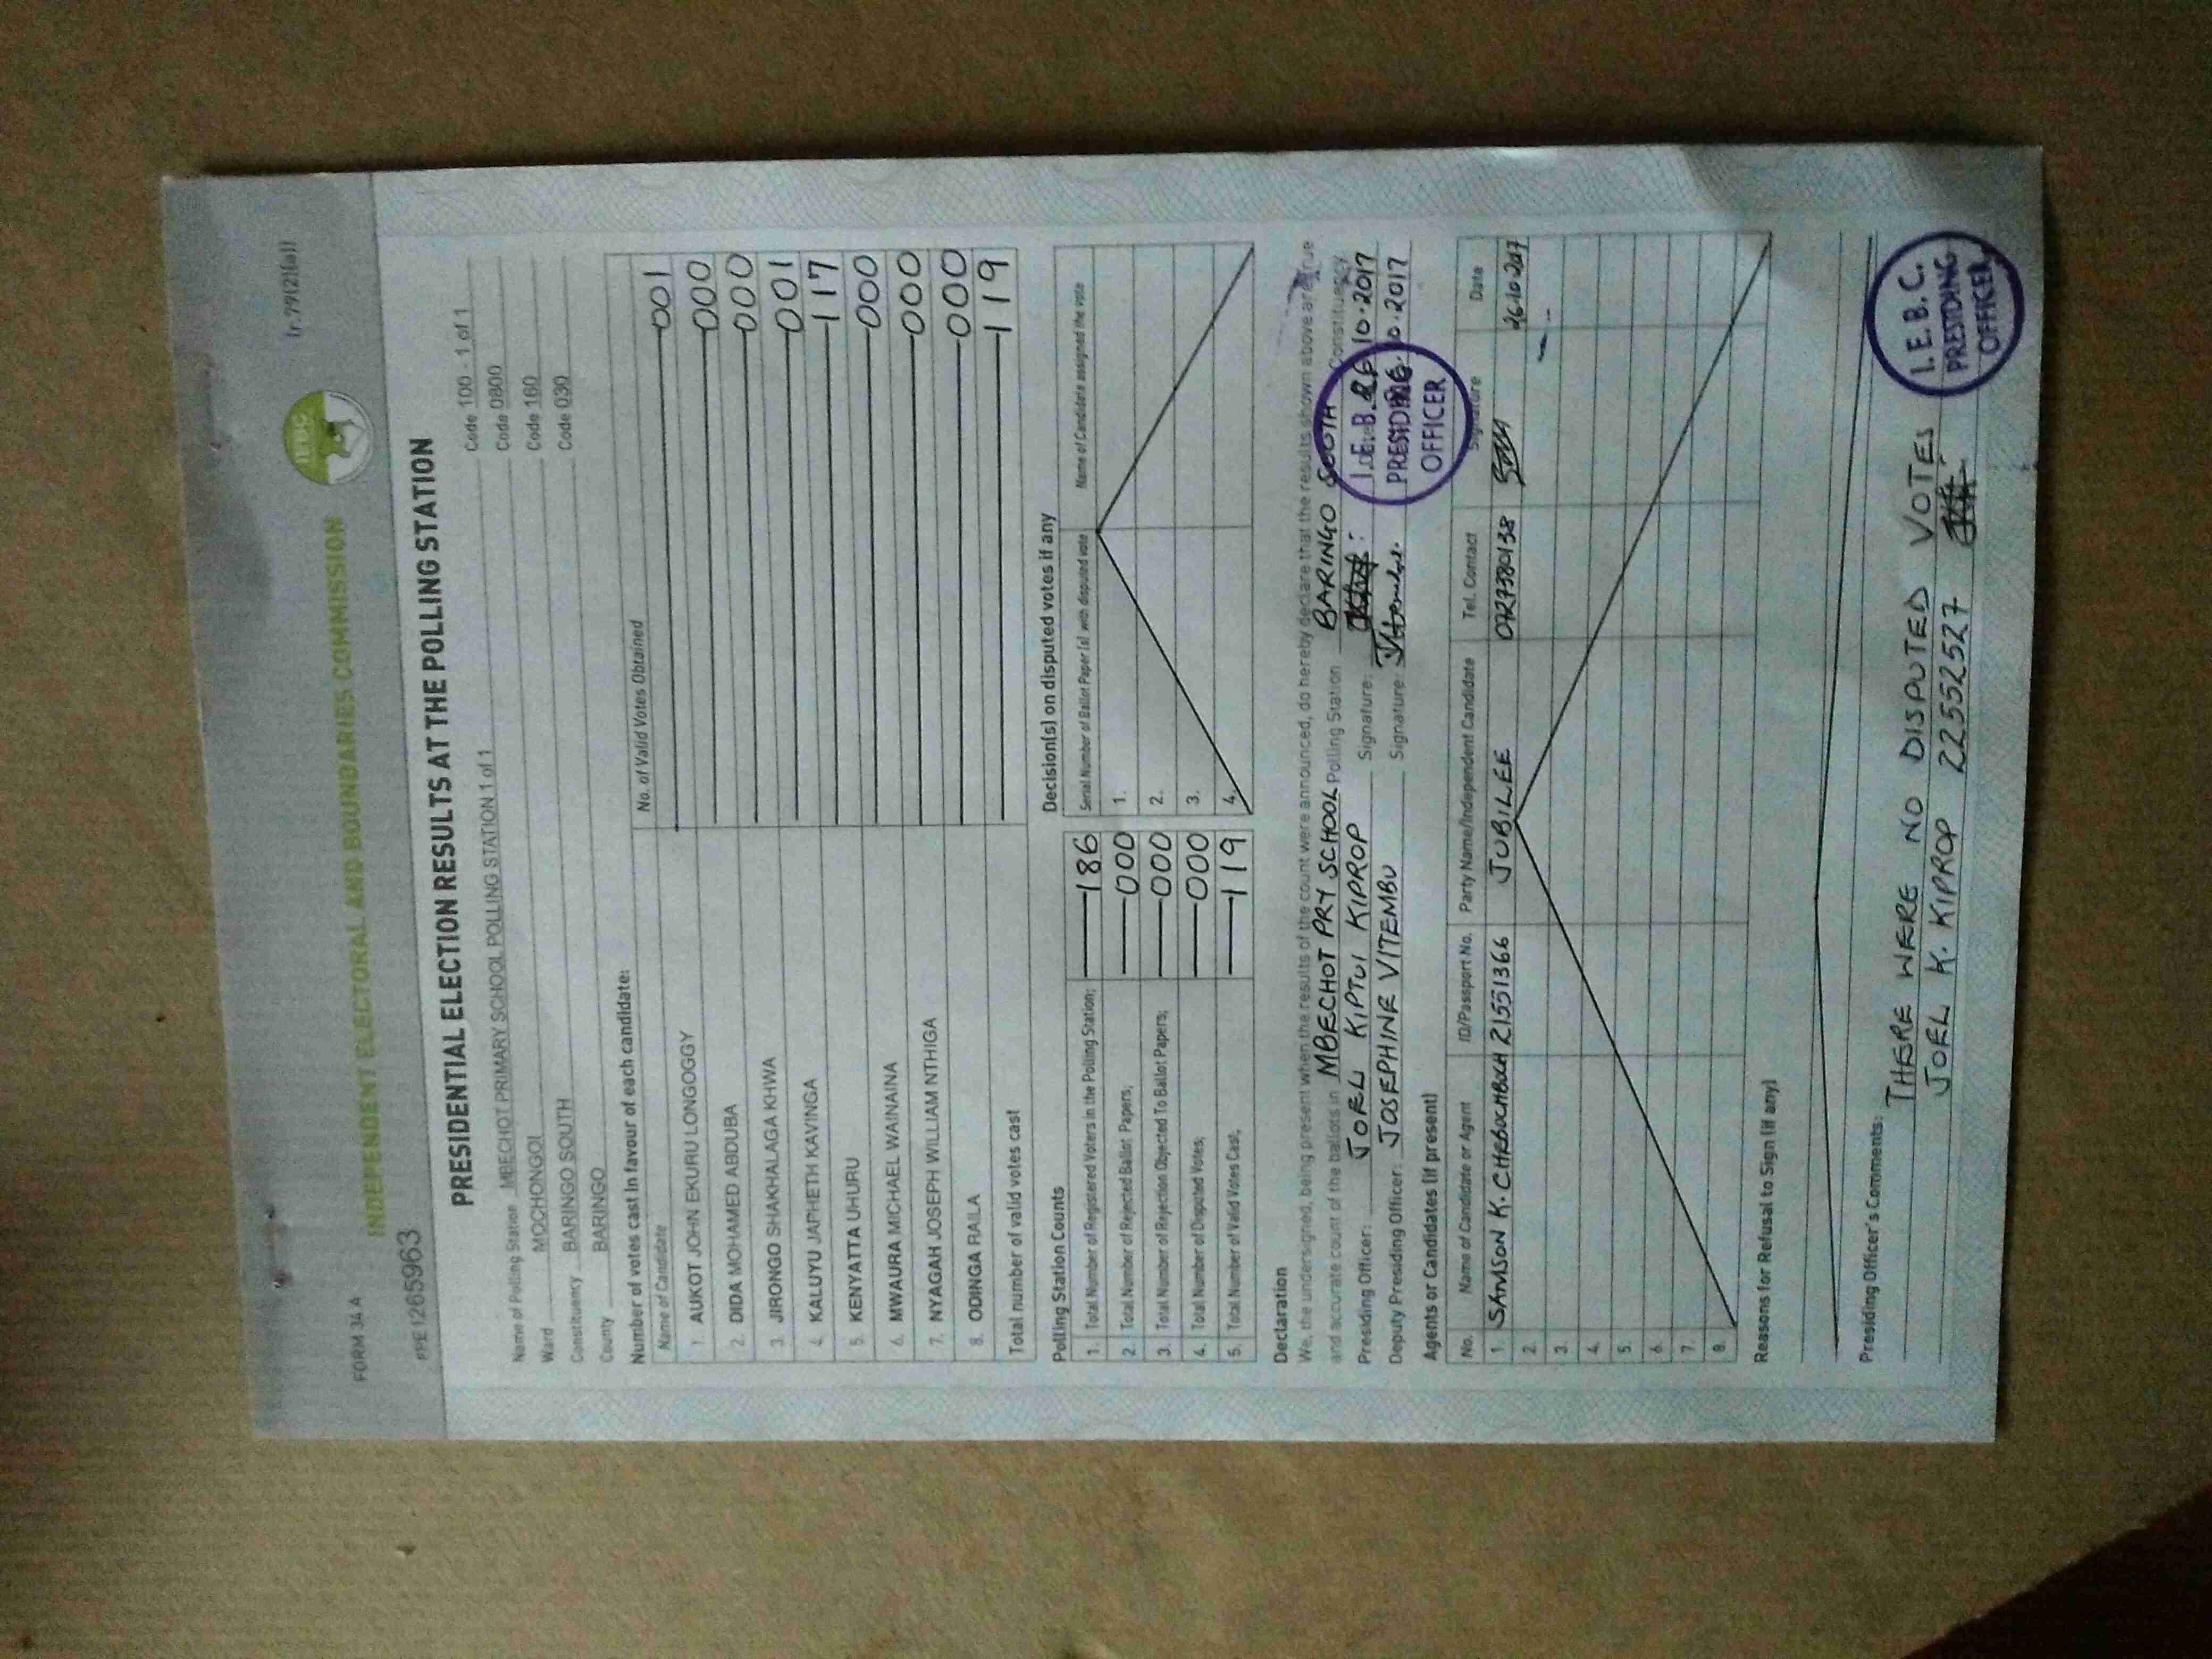 FORM 34 A
(r.79(2)(a))
IEBC
INDEPENDENT ELECTORAL AND BOUNDARIES COMMISSION
PRE1265963
PRESIDENTIAL ELECTION RESULTS AT THE POLLING STATION
Name of Polling Station MBECHOT PRIMARY SCHOOL POLLING STATION 1 of 1 Code 100 - 1 of 1
Ward MOCHONGOI Code 0800
Constituency BARINGO SOUTH Code 160
County BARINGO Code 030
Number of votes cast in favour of each candidate:
Name of Candidate No. of Valid Votes Obtained
1. AUKOT JOHN EKURU LONGOGGY 001
2. DIDA MOHAMED ABDUBA 000
3. JIRONGO SHAKHALAGA KHWA 000
4. KALUYU JAPHETH KAVINGA 001
5. KENYATTA UHURU 117
6. MWAURA MICHAEL WAINAINA 000
7. NYAGAH JOSEPH WILLIAM NTHIGA 000
8. ODINGA RAILA 000
Total number of valid votes cast 119
Polling Station Counts
1. Total Number of Registered Voters in the Polling Station; 186
2. Total Number of Rejected Ballot Papers; 000
3. Total Number of Rejection Objected To Ballot Papers; 000
4. Total Number of Disputed Votes; 000
5. Total Number of Valid Votes Cast; 119
Decision(s) on disputed votes if any
Serial Number of Ballot Paper (s) with disputed vote Name of Candidate assigned the vote
1.
2.
3.
4.
Declaration
We, the undersigned, being present when the results of the count were announced, do hereby declare that the results shown above are true
and accurate count of the ballots in MBECHOT PRY SCHOOL Polling Station BARINGO SOUTH Constituency.
Presiding Officer: JOEL KIPTUI KIPROP Signature: 26.10.2017
Deputy Presiding Officer: JOSEPHINE VITEMBU Signature: 10.2017
I.E.B.C.
PRESIDING
OFFICER
Agents or Candidates (if present)
No. Name of Candidate or Agent ID/Passport No. Party Name/Independent Candidate Tel. Contact Signature Date
1. SAMSON K. CHEBOCHBOCH 21551366 JUBILEE 0727380138 26.10.2017
2.
3.
4.
5.
6.
7.
8.
Reasons for Refusal to Sign (if any)
Presiding Officer's Comments:
THERE WERE NO DISPUTED VOTES
JOEL K. KIPROP 22552527
I.E.B.C.
PRESIDING
OFFICER